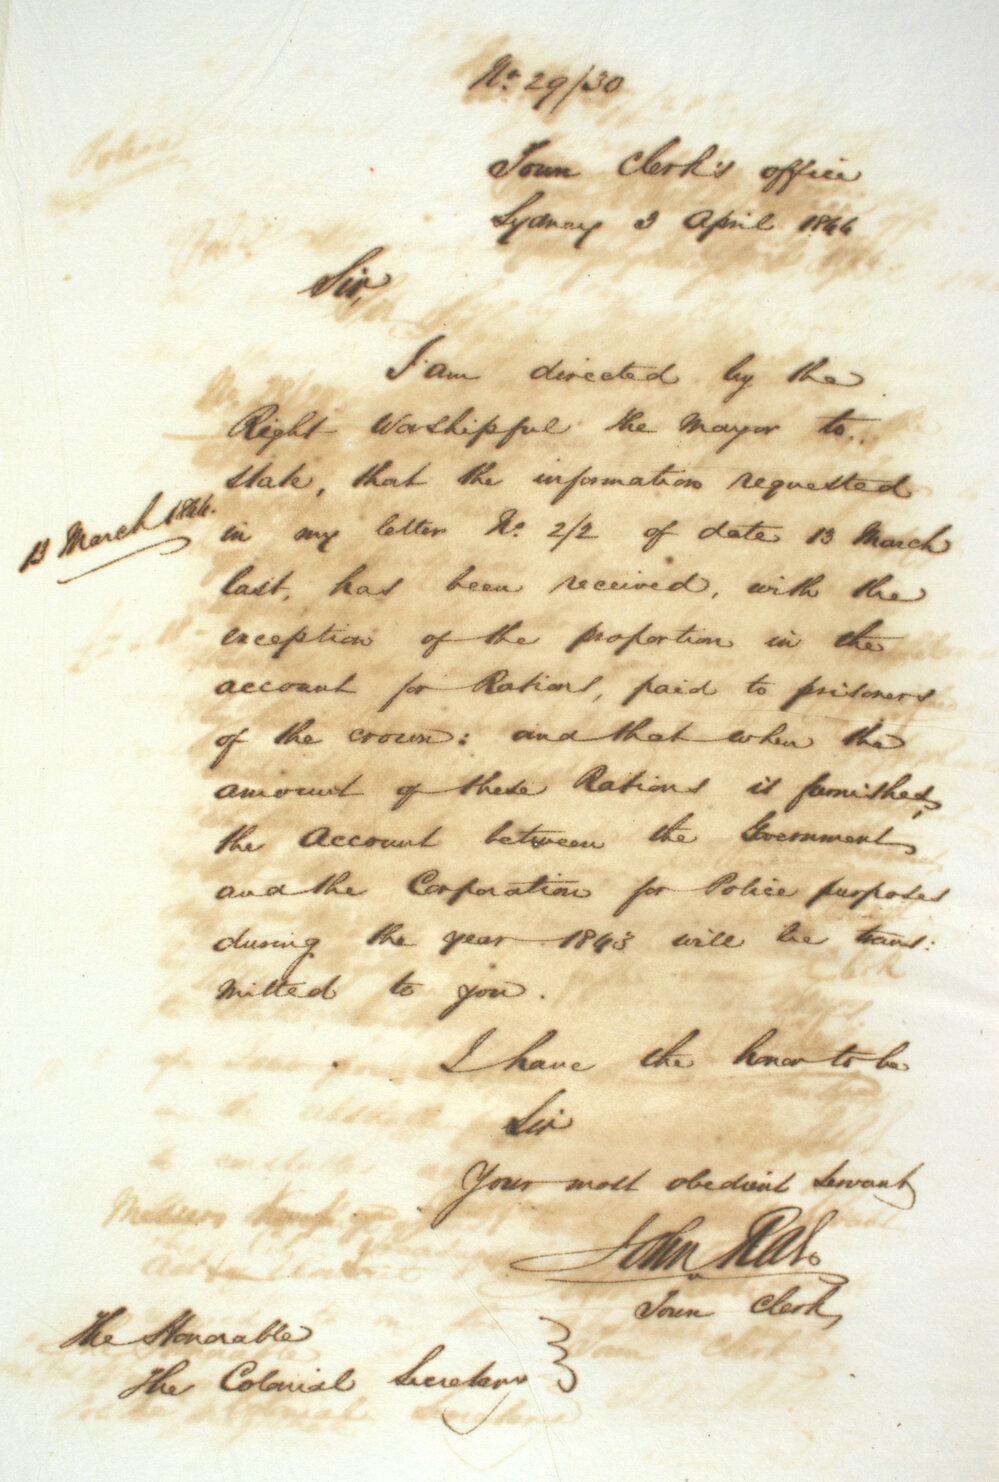 No. 29/30
Town Clerk's office
Sydney 3 April 1844
Sir,
I am directed by the
Right Worshipful the Mayor to
state, that the information requested
13 March 1844.
in my letter No. 2/2 of date 13 March
last, has been received, with the
exception of the proportion in the
account for Rations, paid to prisoners
of the crown: and that when the
amount of these Rations is furnished,
the Account between the Government
and the Corporation for Police purposes
during the year 1843 will be trans:
mitted to you.
I have the honor to be
Sir
Your most obedient servant
John Rae
Town Clerk
The Honorable
The Colonial Secretary